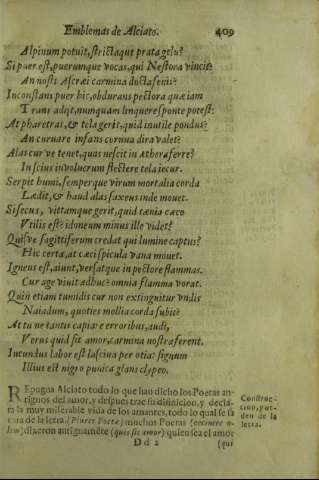 Emblemas de Alciato. 409
Alpinum potuit, strictaque prata gelu?
Si puer est, puerumque vocas, qui Nestora vincit?
An nosti Ascræi carmina docta senis?
Inconstans puer hic, obdurans pectora quæ iam
Trans adijt, numquam linquere sponte potest:
At pharetras, & tela gerit, quid inutile pondus?
An curuare infans cornua dira valet?
Alas cur ve tenet, quas nescit in æthera ferre?
Inscius in volucrum flectere tela iecur.
Serpit humi, semperque virum mortalia corda
Lædit, & haud alas saxeus inde mouet.
Si cæcus, vittamque gerit, quid tænia cæco
Vtilis est? idoneum minus ille videt?
Quisve sagittiferum credat qui lumine captus?
Hic certa, at cæci spicula vana mouet.
Igneus est, aiunt, versatque in pectore flammas.
Cur age viuit adhuc? omnia flamma vorat.
Quin etiam tumidis cur non extinguitur vndis
Naiadum, quoties mollia corda subit?
At tu ne tantis capiare erroribus, audi,
Verus quid sit amor, carmina nostra ferent.
Iucundus labor est lasciua per otia: signum
Illius est nigro punica glans clypeo.
REpugna Alciato todo lo que han dicho los Poetas an-
tiguos del amor, y despues trae su difinicion, y decla-
ra la muy miserable vida de los amantes, todo lo qual se sa
cara de la letra. (Plures Poetæ) muchos Poetas (cecinere o-
lim) dixeron antiguamēte (quis sit amor) quien sea el amor
Construc-
cion, y or-
den de la
letra.
D d 2 (qui